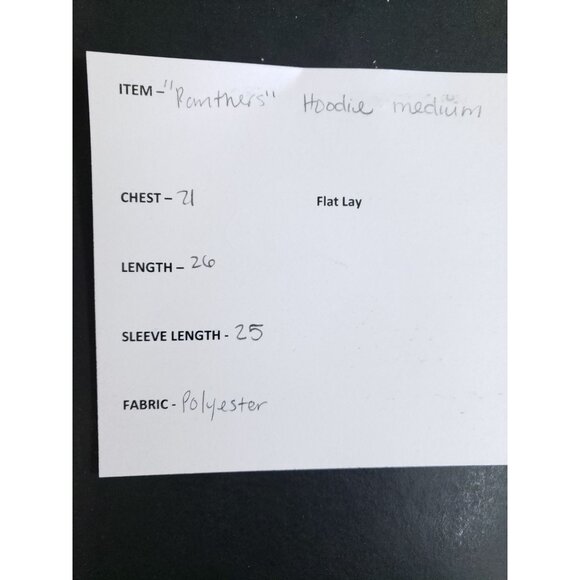 ITEM – "Panthers" Hoodie medium
CHEST – 21 Flat Lay
LENGTH – 26
SLEEVE LENGTH - 25
FABRIC - Polyester